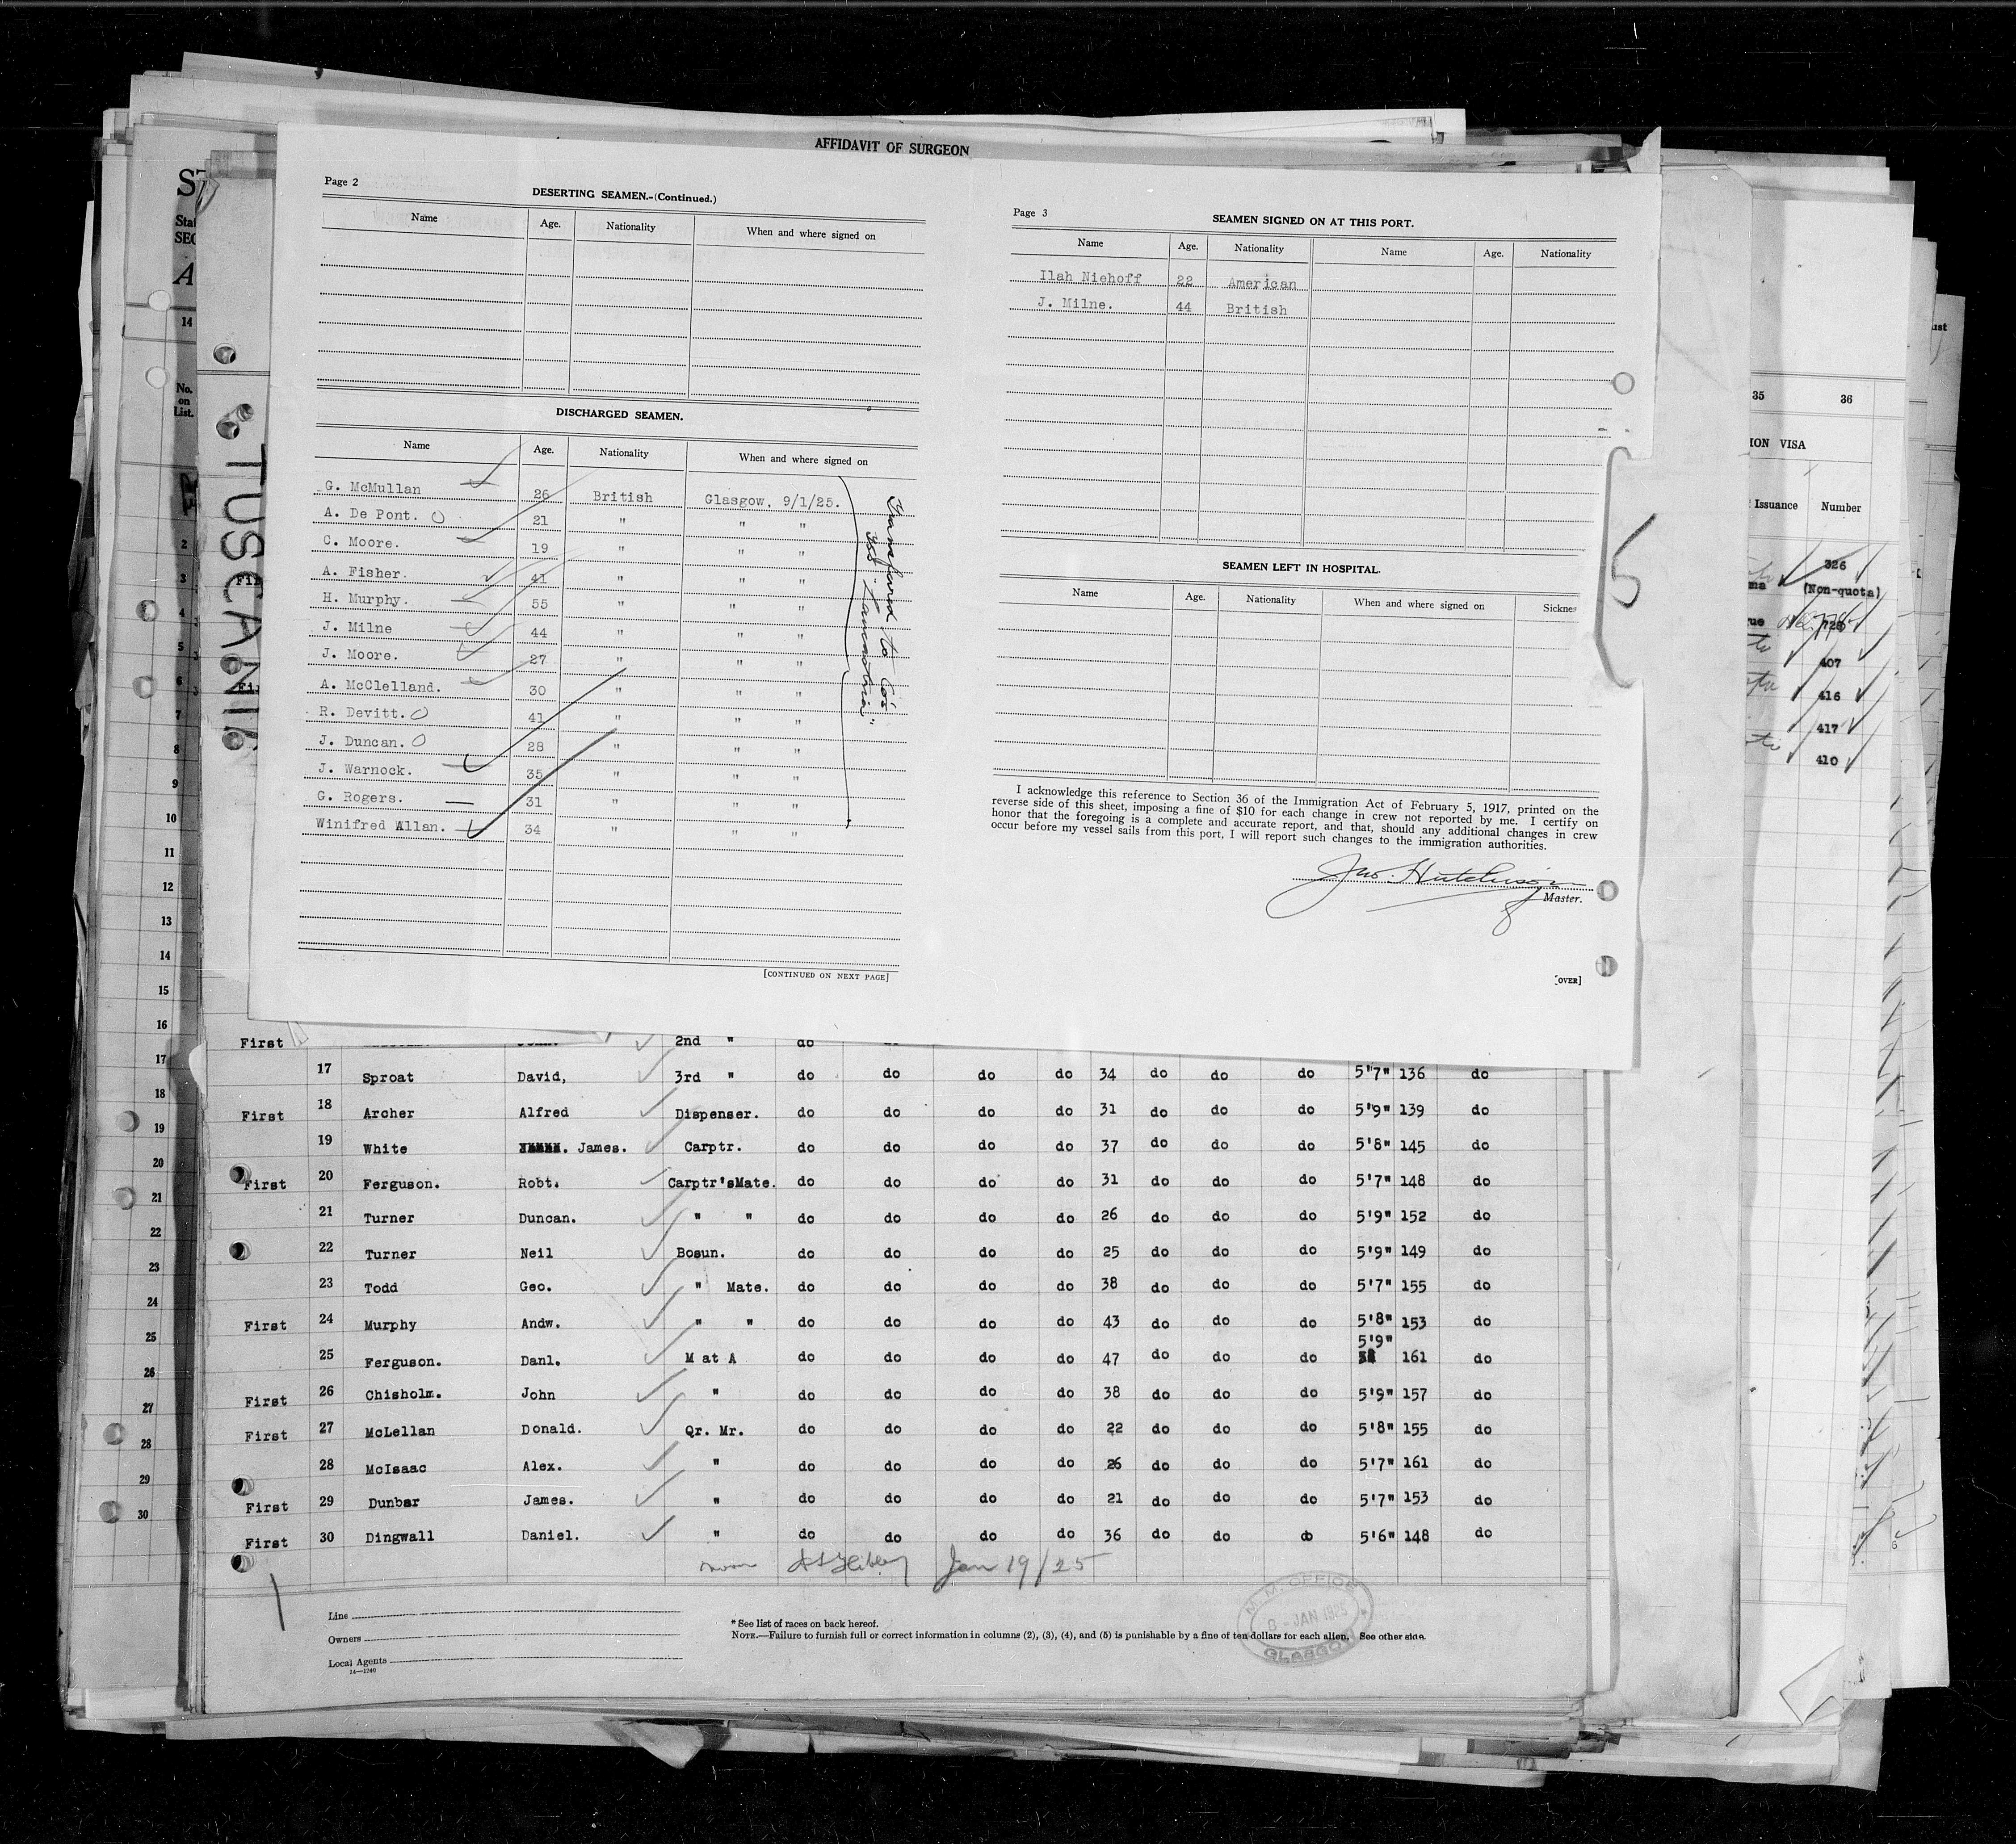 AFFIDAVIT OF SURGEON
Page 2
DESERTING SEAMEN.-(Continued.)
Name Age. Nationality When and where signed on
DISCHARGED SEAMEN.
Name Age. Nationality When and where signed on
G. McMullan 26 British Glasgow, 9/1/25.
A. De Pont. 21 " " "
C. Moore. 19 " " "
A. Fisher. 41 " " "
H. Murphy. 55 " " "
J. Milne 44 " " "
J. Moore. 27 " " "
A. McClelland. 30 " " "
R. Devitt. 41 " " "
J. Duncan. 28 " " "
J. Warnock. 35 " " "
G. Rogers. 31 " " "
Winifred Allan. 34 " " "
Transferred to Co's
"Lancastria"
[CONTINUED ON NEXT PAGE]
Page 3
SEAMEN SIGNED ON AT THIS PORT.
Name Age. Nationality Name Age. Nationality
Ilah Niehoff 22 American
J. Milne. 44 British
SEAMEN LEFT IN HOSPITAL.
Name Age. Nationality When and where signed on Sicknes
I acknowledge this reference to Section 36 of the Immigration Act of February 5, 1917, printed on the
reverse side of this sheet, imposing a fine of $10 for each change in crew not reported by me. I certify on
honor that the foregoing is a complete and accurate report, and that, should any additional changes in crew
occur before my vessel sails from this port, I will report such changes to the immigration authorities.
Jno. Hutchison
Master.
[OVER]
5
ST
Stat
SEC
A
14
No.
on
List.
2
3
4
5
6
7
8
9
10
11
12
13
14
15
16
17
18
19
20
21
22
23
24
25
26
27
28
29
30
TUSCANIA
35 36
ION VISA
Issuance Number
326
(Non-quota)
728
407
416
417
410
First 2nd " do
17 Sproat David, 3rd " do do do do 34 do do do 5'7" 136 do
First 18 Archer Alfred Dispenser. do do do do 31 do do do 5'9" 139 do
19 White James. Carptr. do do do do 37 do do do 5'8" 145 do
First 20 Ferguson. Robt. Carptr'sMate. do do do do 31 do do do 5'7" 148 do
21 Turner Duncan. " " do do do do 26 do do do 5'9" 152 do
22 Turner Neil Bosun. do do do do 25 do do do 5'9" 149 do
23 Todd Geo. " Mate. do do do do 38 do do do 5'7" 155 do
First 24 Murphy Andw. " " do do do do 43 do do do 5'8" 153 do
25 Ferguson. Danl. M at A do do do do 47 do do do 5'9" 161 do
First 26 Chisholm. John " do do do do 38 do do do 5'9" 157 do
First 27 McLellan Donald. Qr. Mr. do do do do 22 do do do 5'8" 155 do
28 McIsaac Alex. " do do do do 26 do do do 5'7" 161 do
First 29 Dunbar James. " do do do do 21 do do do 5'7" 153 do
First 30 Dingwall Daniel. " do do do do 36 do do do 5'6" 148 do
Jan 19/25
Line
Owners
Local Agents
14—1240
* See list of races on back hereof.
NOTE.—Failure to furnish full or correct information in columns (2), (3), (4), and (5) is punishable by a fine of ten dollars for each alien. See other side.
M. M. OFFICE
8 - JAN 1925
GLASGOW